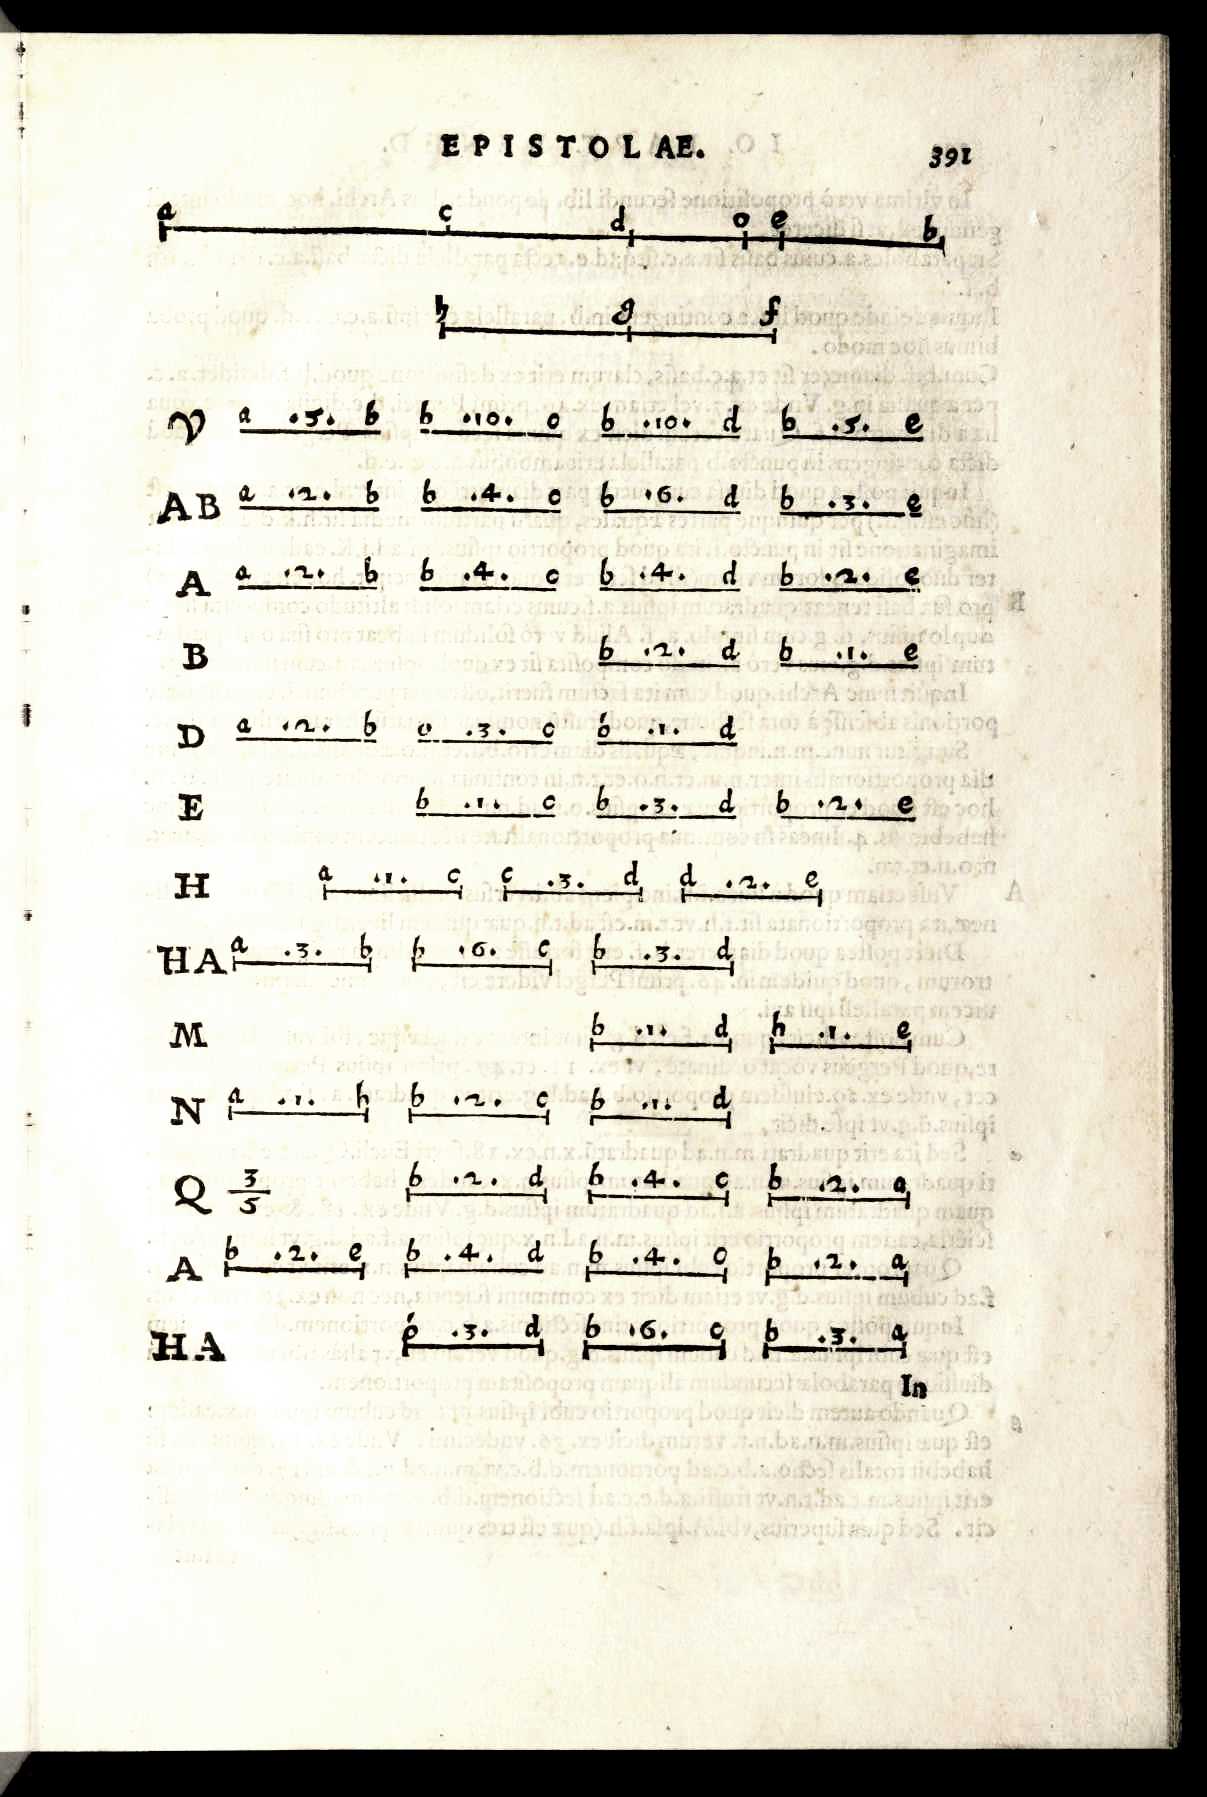 EPISTOLAE. 391
a c d o e b
h g f
♈ a .5. b b .10. c b .10. d b .5. e
AB a .2. b b .4. c b .6. d b .3. e
A a .2. b b .4. c b .4. d b .2. e
B b .2. d b .1. e
D a .2. b o .3. c b .1. d
E b .1. c b .3. d b .2. e
H a .1. c c .3. d d .2. e
HA a .3. b b .6. c b .3. d
M b .1. d h .1. e
N a .1. h b .2. c b .1. d
Q 3/5 b .2. d b .4. c b .2. a
A b .2. e b .4. d b .4. c b .2. a
HA b .3. d b .6. c b .3. a
In